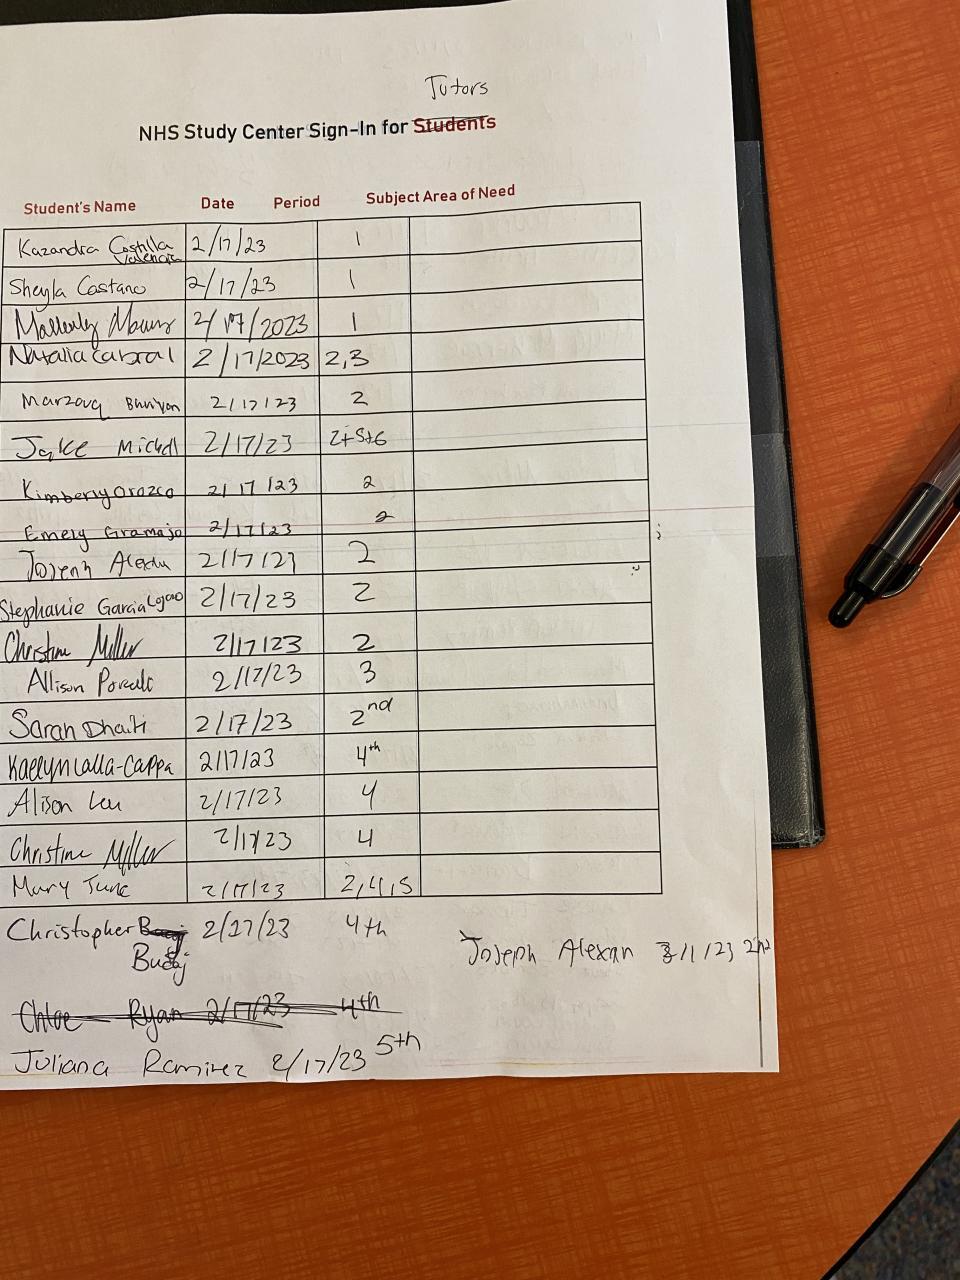 Tutors
NHS Study Center Sign-In for Students
Student's Name Date Period Subject Area of Need
Kazandra Costilla Valencia 2/17/23 1
Sheyla Castano 2/17/23 1
2/17/2023 1
Natalia Cabral 2/17/2023 2,3
Marzouq 2/17/23 2
Jake Michell 2/17/23 2+5+6
Kimberly Orozco 2/17/23 2
Emely Gramajo 2/17/23 2
Joseph 2/17/23 2
Stephanie Garcia 2/17/23 2
Christine Miller 2/17/23 2
Allison 2/17/23 3
Sarah Dhaiti 2/17/23 2nd
Kaelyn Calla-Cappa 2/17/23 4th
Alison 2/17/23 4
Christine Miller 2/17/23 4
Mary June 2/17/23 2,4,5
Christopher 2/17/23 4th
Budaj
Joseph Alexan 3/1/23 2nd
Chloe Ryan 2/17/23 4th
Juliana Ramirez 2/17/23 5th